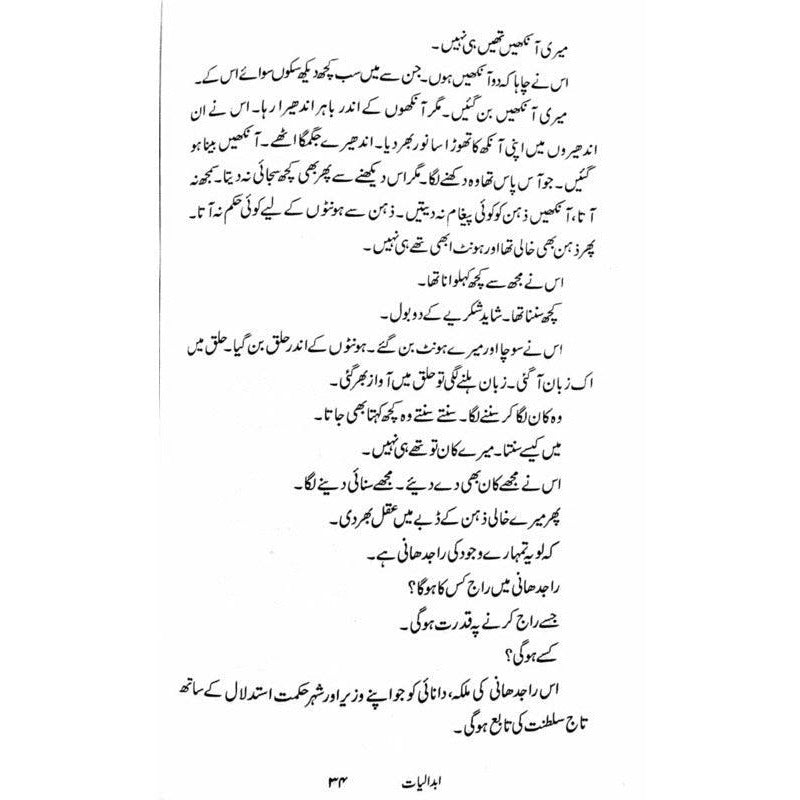 میری آنکھیں تھیں ہی نہیں۔
اس نے چاہا کہ دو آنکھیں ہوں۔ جن سے میں سب کچھ دیکھ سکوں سوائے اس کے۔
میری آنکھیں بن گئیں۔ مگر آنکھوں کے اندر باہر اندھیرا رہا۔ اس نے ان
اندھیروں میں اپنی آنکھ کا تھوڑا سا نور بھر دیا۔ اندھیرے جگمگا اٹھے۔ آنکھیں بینا ہو
گئیں۔ جو آس پاس تھا وہ دکھنے لگا۔ مگر اس دیکھنے سے پھر بھی کچھ سجائی نہ دیتا۔ سمجھ نہ
آتا، آنکھیں ذہن کو کوئی پیغام نہ دیتیں۔ ذہن سے ہونٹوں کے لیے کوئی حکم نہ آتا۔
پھر ذہن بھی خالی تھا اور ہونٹ ابھی تھے ہی نہیں۔
اس نے مجھ سے کچھ کہلوانا تھا۔
کچھ سننا تھا۔ شاید شکریے کے دو بول۔
اس نے سوچا اور میرے ہونٹ بن گئے۔ ہونٹوں کے اندر حلق بن گیا۔ حلق میں
اک زبان آ گئی۔ زبان ہلنے لگی تو حلق میں آواز بھر گئی۔
وہ کان لگا کر سننے لگا۔ سنتے سنتے وہ کچھ کہتا بھی جاتا۔
میں کیسے سنتا۔ میرے کان تو تھے ہی نہیں۔
اس نے مجھے کان بھی دے دیئے۔ مجھے سنائی دینے لگا۔
پھر میرے خالی ذہن کے ڈبے میں عقل بھر دی۔
کہ لو یہ تمہارے وجود کی راجدھانی ہے۔
راجدھانی میں راج کس کا ہوگا؟
جسے راج کرنے پہ قدرت ہوگی۔
کسے ہوگی؟
اس راجدھانی کی ملکہ، دانائی کو جو اپنے وزیر اور شہر حکمت استدلال کے ساتھ
تاج سلطنت کی تابع ہوگی۔
ابدالیات ۳۴